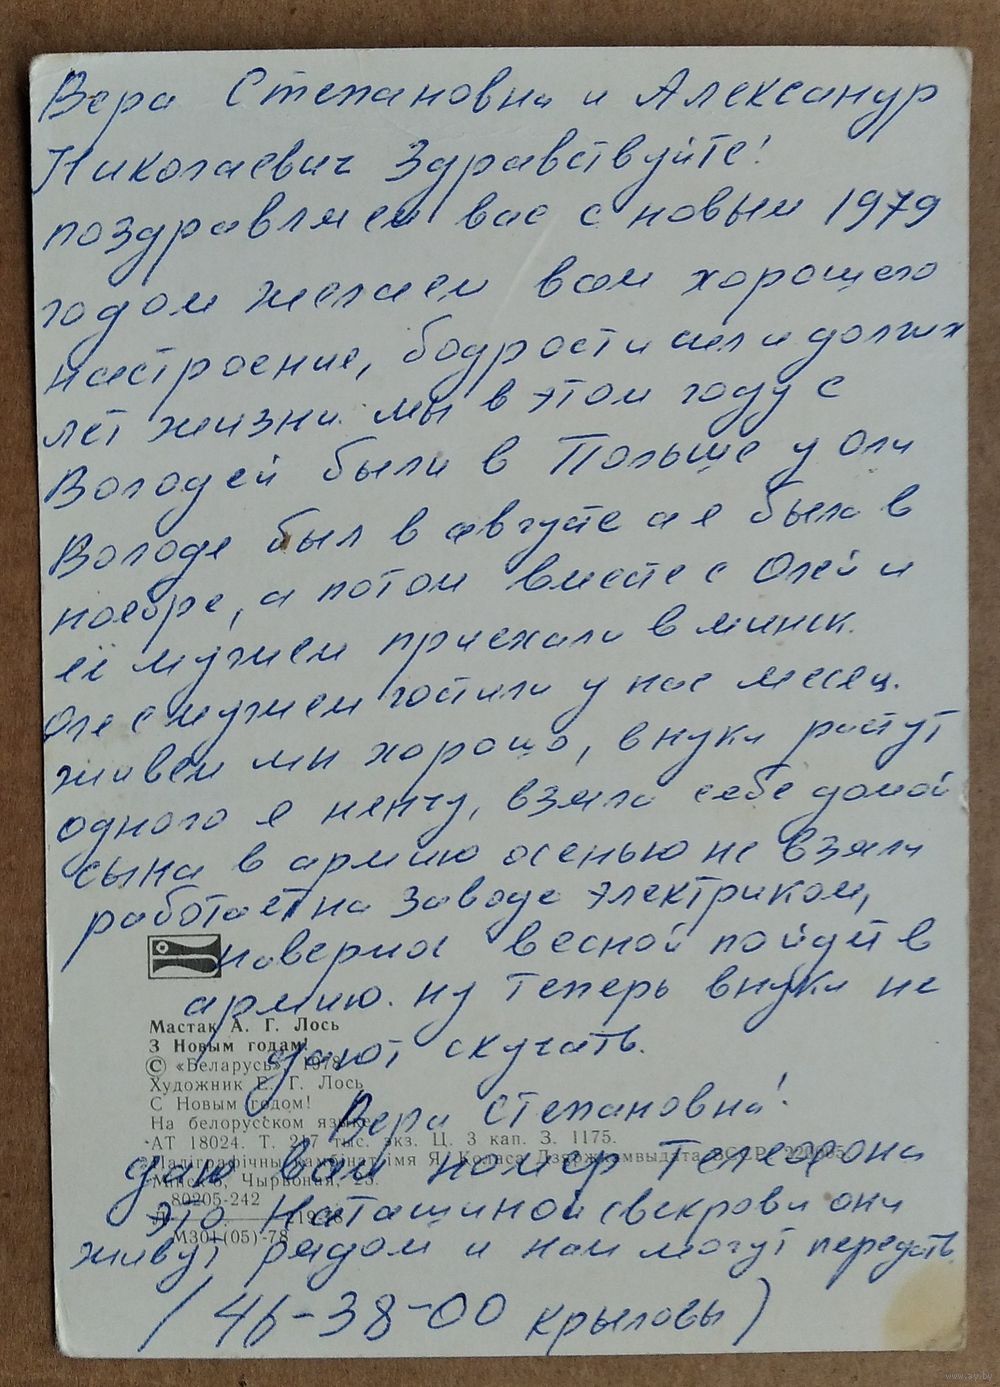 Вера Степановна и Александр
Николаевич Здравствуйте!
поздравляем вас с новым 1979
годом желаем вам хорошего
настроение, бодрости сил и долгих
лет жизни. мы в этом году с
Володей были в Польше у Оли
Володе был в августе а я была в
ноебре, а потом вместе с Олей и
её мужем приехали в минск.
Оле с мужем гостили у нас месец.
живем мы хорошо, внуки растут
одного я ненчу, взяла себе домой
сына в армию осенью не взяли
работает на заводе электриком,
наверно весной пойдет в
армию. ну теперь внуки не
дают скучать.
Вера Степановна!
даю вам номер телефона
это Наташиной свекрови они
живут рядом и нам могут передать
(46-38-00 крыловы)
Мастак А. Г. Лось
З Новым годам!
© «Беларусь», 1978
Художник Е. Г. Лось
С Новым годом!
На белорусском языке
АТ 18024. Т. 217 тыс. экз. Ц. 3 кап. З. 1175.
Паліграфічны камбінат імя Я. Коласа Дзяржкамвыдата БССР, 220005,
Мінск, Чырвоная, 23.
80205-242
М301(05)-78
www.ay.by